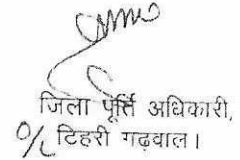 जिला पूर्ति अधिकारी,
O/C टिहरी गढ़वाल।